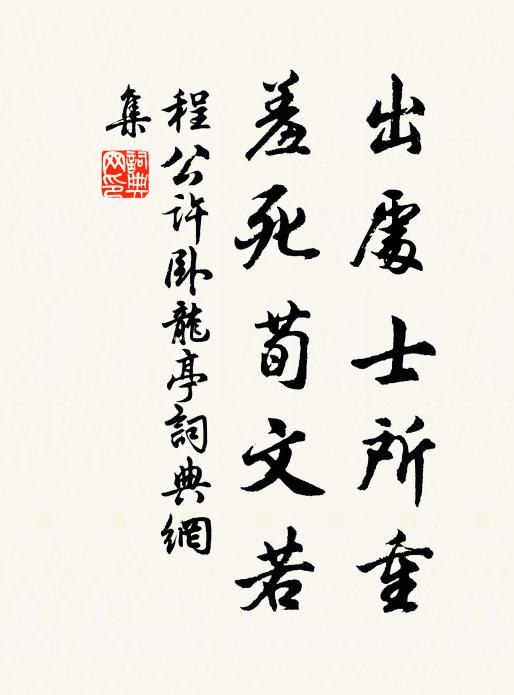 出處士所重
羞死荀文若
程公許臥龍亭詞典網
集
詞典网印